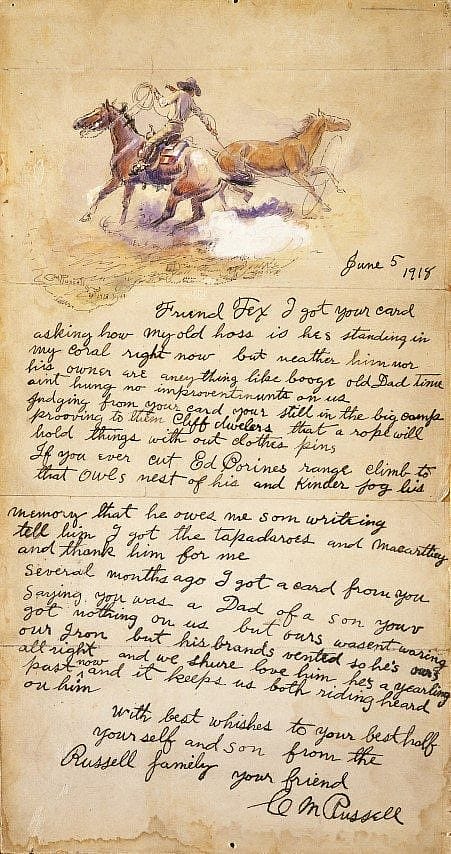 CM Russell
June 5 1918
Friend Tex I got your card
asking how my old hoss is hes standing in
my coral right now but neather him nor
his owner are aney thing like booze old Dad time
aint hung no improventmunts on us
Judging from your card your still in the big camps
prooving to them Cliff dwelers that a rope will
hold things with out clothes pins
If you ever cut Ed Borines range climb to
that Owls nest of his and kinder jog his
memory that he owes me som writeing
tell him I got the tapadaroes and macarthey
and thank him for me
Several months ago I got a card from you
saying you was a Dad of a son youv
got nothing on us but ours wasent waring
our Iron but his brands vented so he's ours
all right now and we shure love him he's a yearling
past and it keeps us both riding heard
on him
With best whishes to your best half
your self and son from the
Russell family
your friend
C M Russell